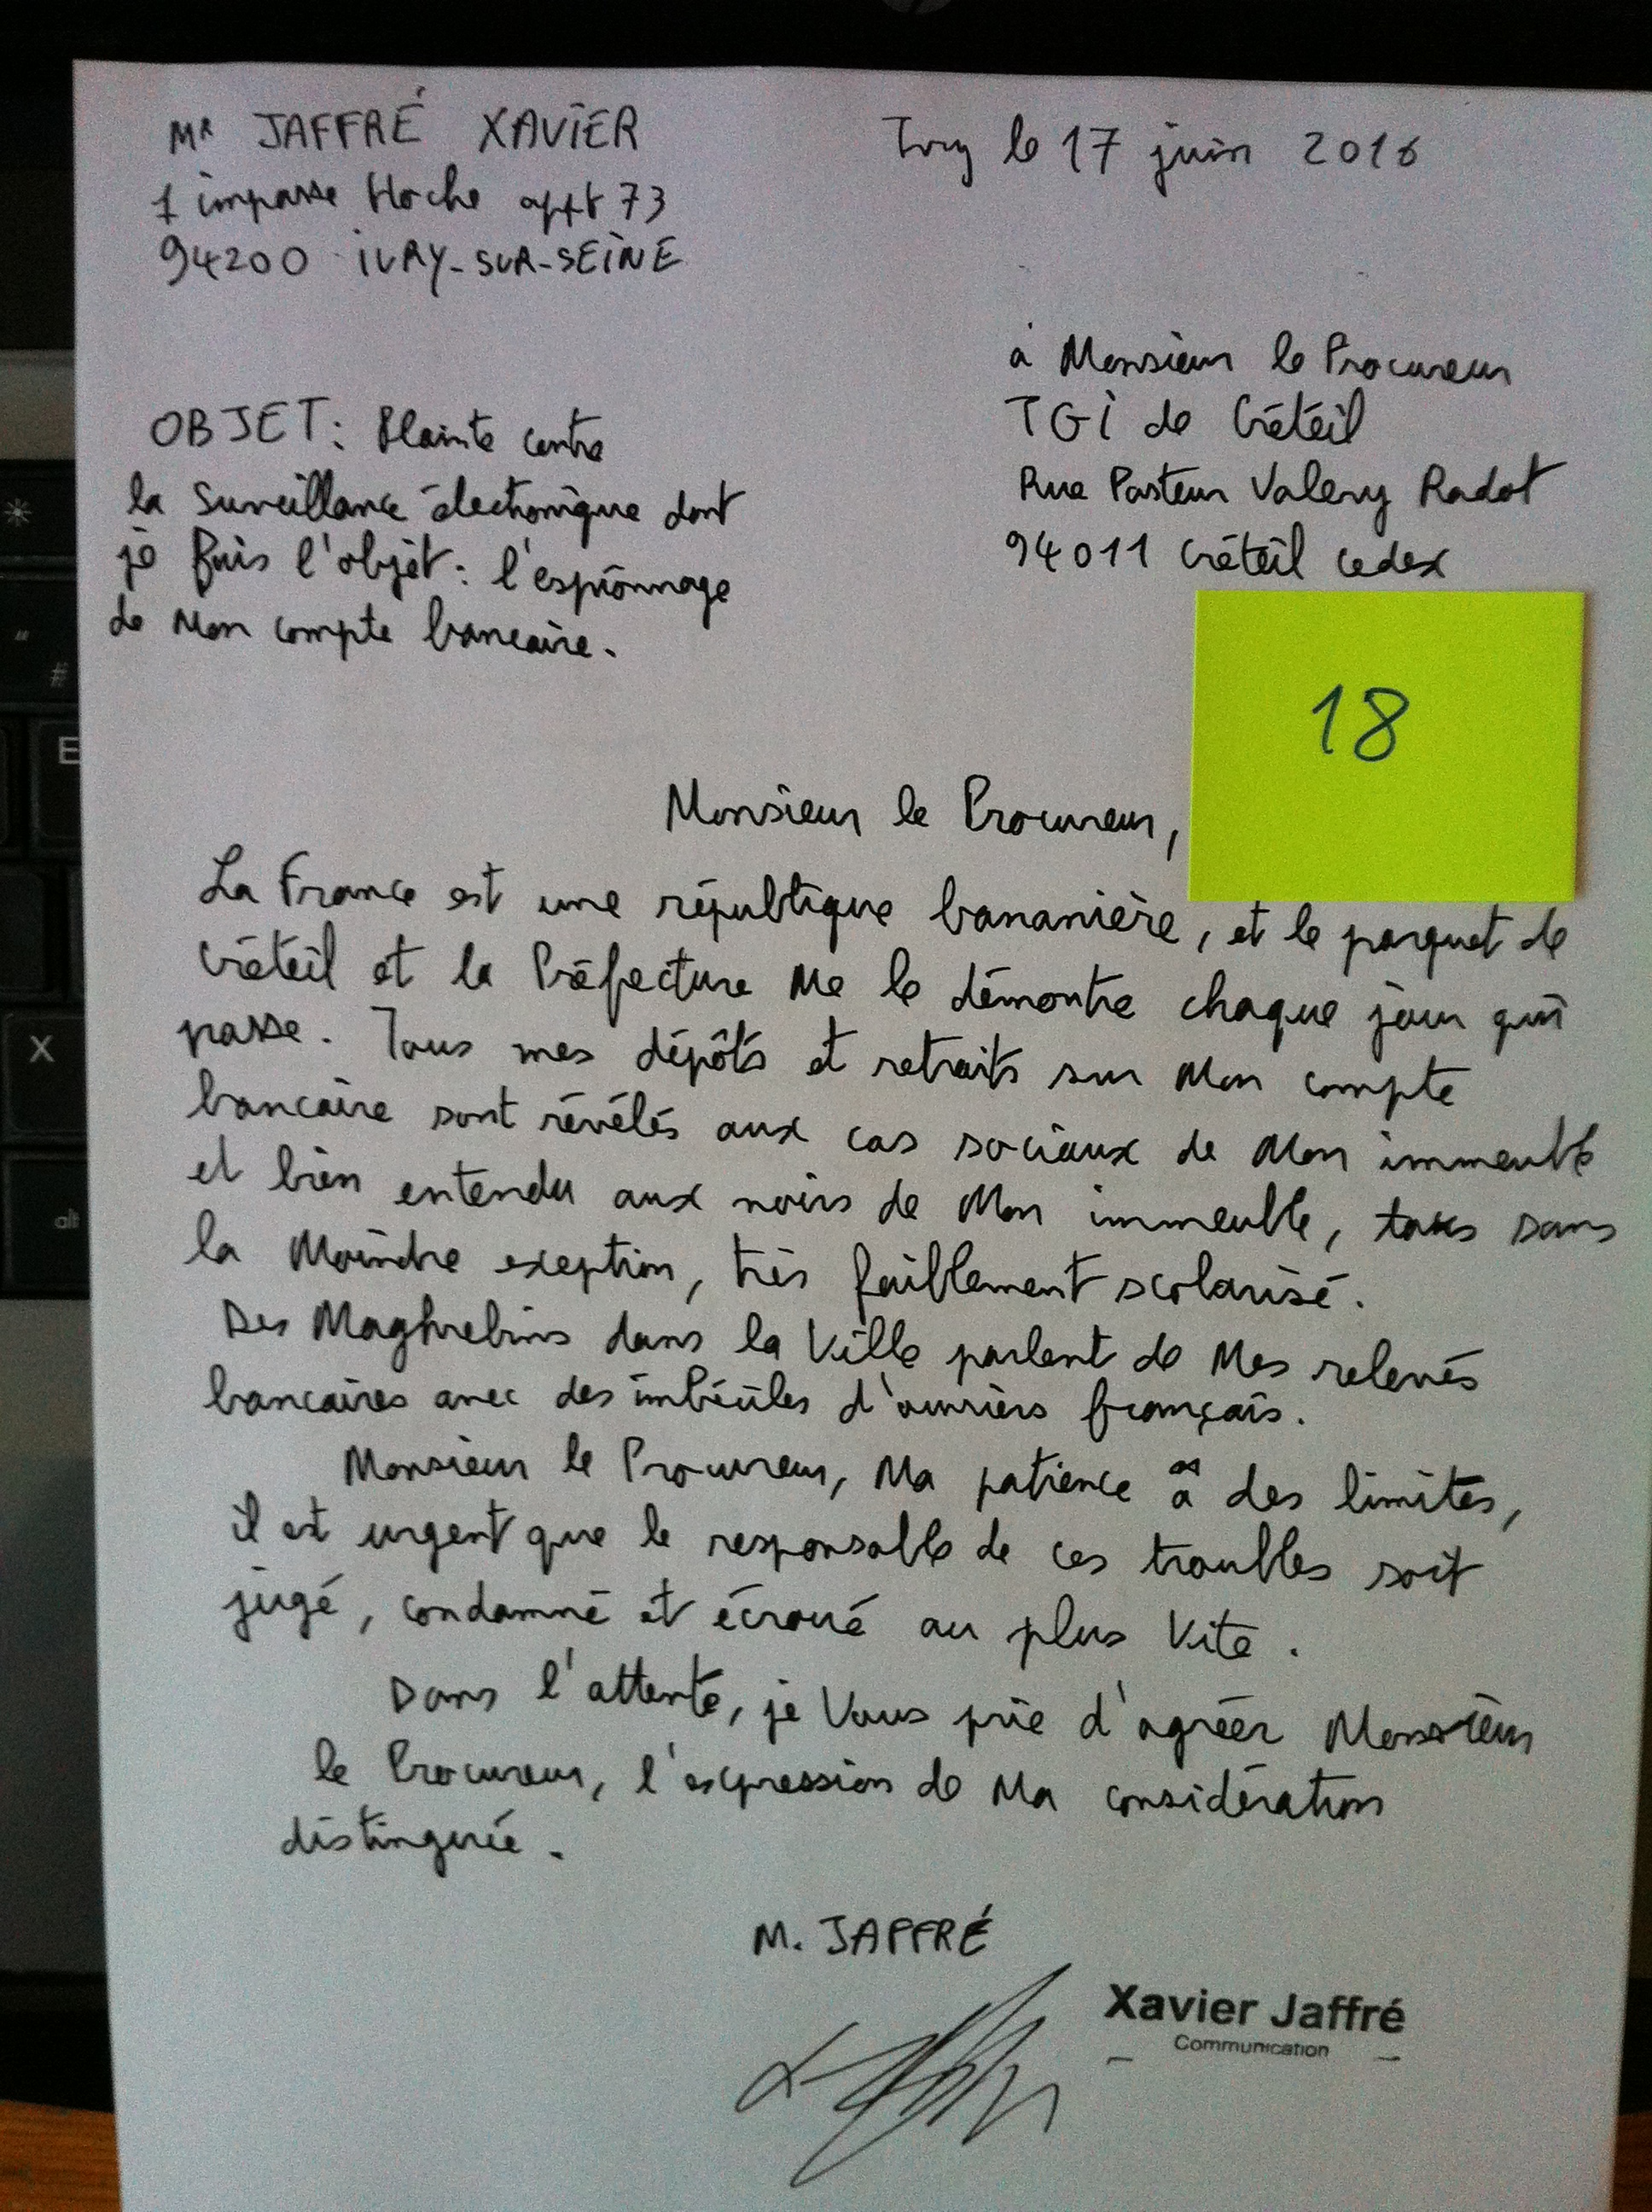 Mr JAFFRÉ XAVIER
Ivry le 17 juin 2016
1 impasse Hoche appt 73
94200 IVRY-SUR-SEINE
à Monsieur le Procureur
TGI de Créteil
Rue Pasteur Valery Radot
94011 Créteil cedex
OBJET: Plainte contre
la surveillance électronique dont
je fais l'objet: l'espionnage
de Mon compte bancaire.
18
Monsieur le Procureur,
La France est une république bananière, et le parquet de
Créteil et la Préfecture Me le démontre chaque jour qui
passe. Tous mes dépôts et retraits sur Mon compte
bancaire sont révélés aux cas sociaux de Mon immeuble
et bien entendu aux noirs de Mon immeuble, tous sans
la Moindre exeption, très faiblement scolarisé.
Des Maghrebins dans la Ville parlent de Mes relevés
bancaires avec des imbéciles d'ouvriers français.
Monsieur le Procureur, Ma patience a des limites,
il est urgent que le responsable de ces troubles soit
jugé, condamné et écroué au plus Vite.
Dans l'attente, je Vous prie d'agréer Monsieur
le Procureur, l'expression de Ma considération
distinguée.
M. JAFFRÉ
Xavier Jaffré
Communication
*
"
#
E
X
alt